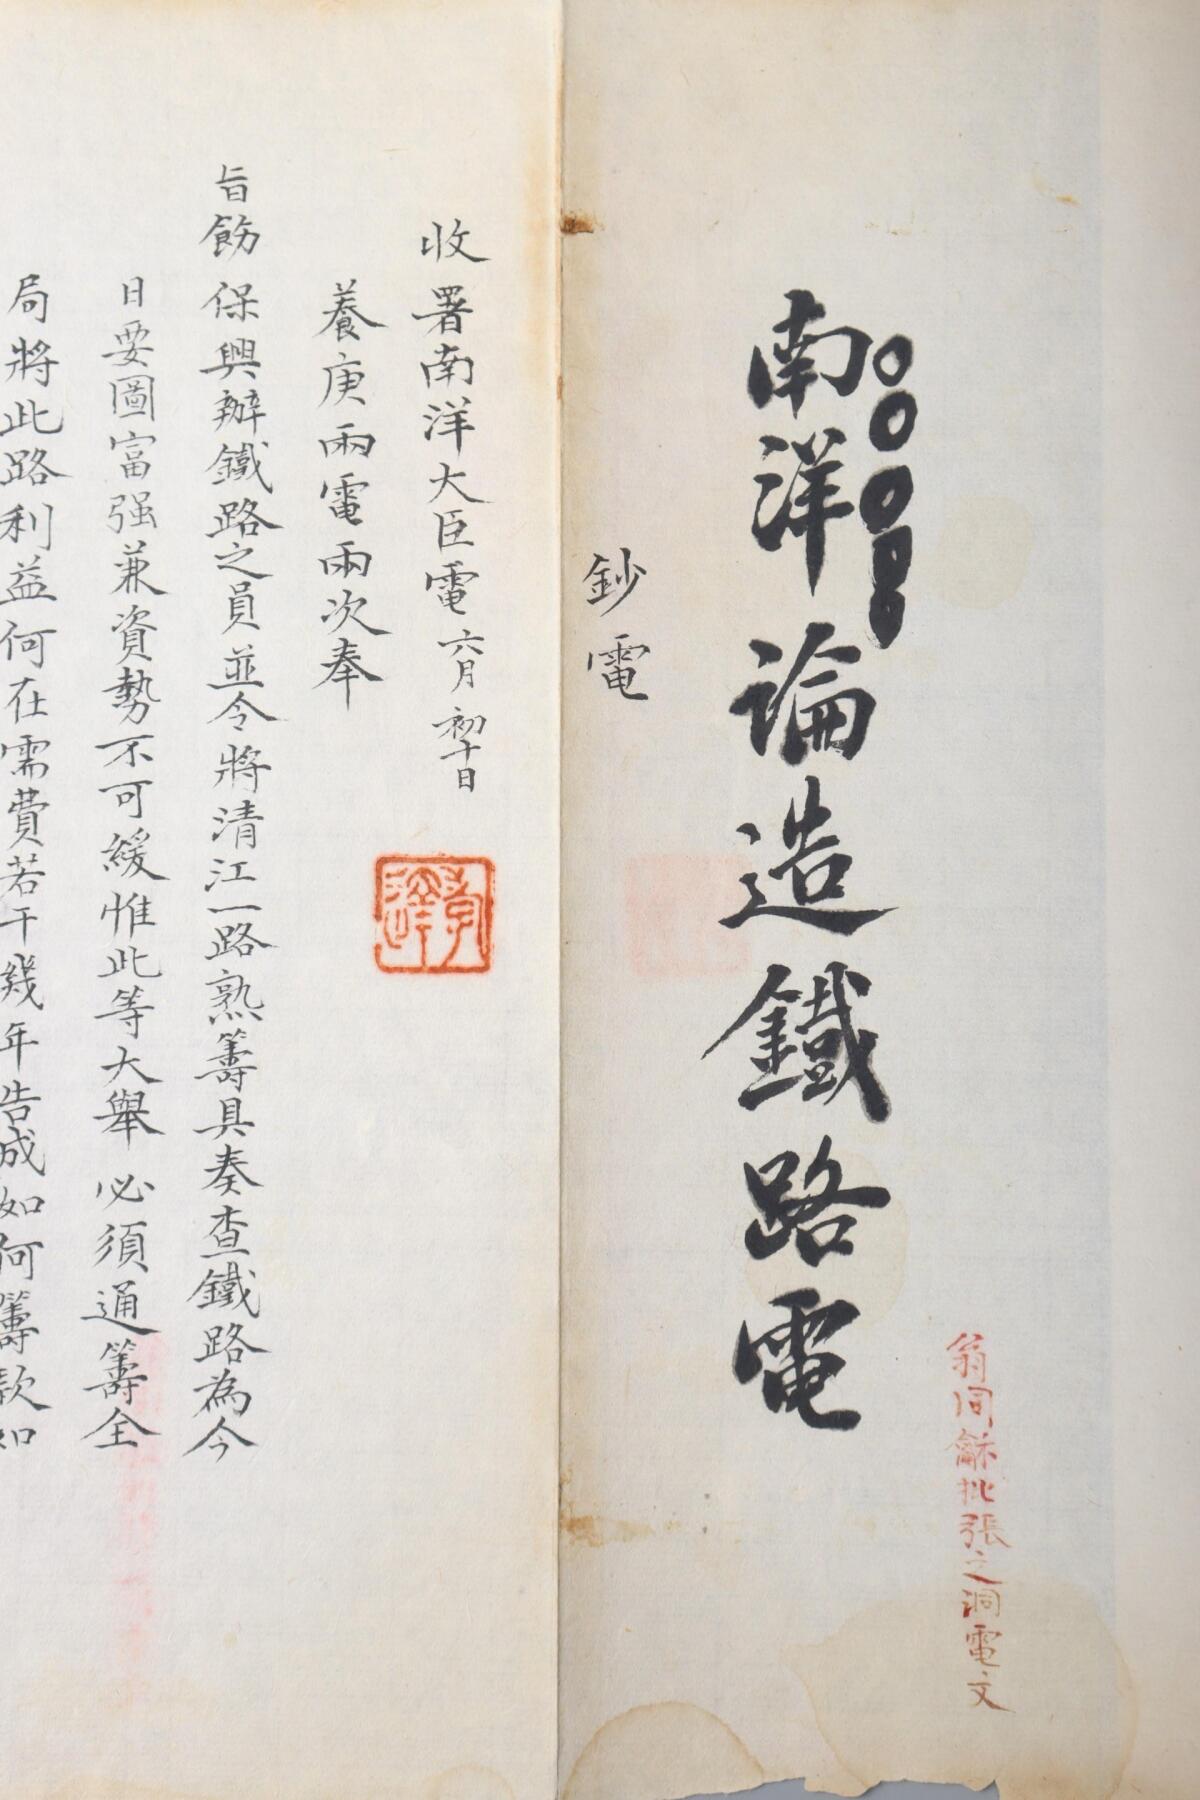 翁同龢批張之洞電文
南洋論造鐵路電
鈔電
收署南洋大臣電六月初十日
養庚兩電兩次奉
旨飭保興辦鐵路之員並令將清江一路熟籌具奏查鐵路為今
日要圖富强兼資勢不可緩惟此等大舉必須通籌全
局將此路利益何在需費若干幾年告成如何籌款如